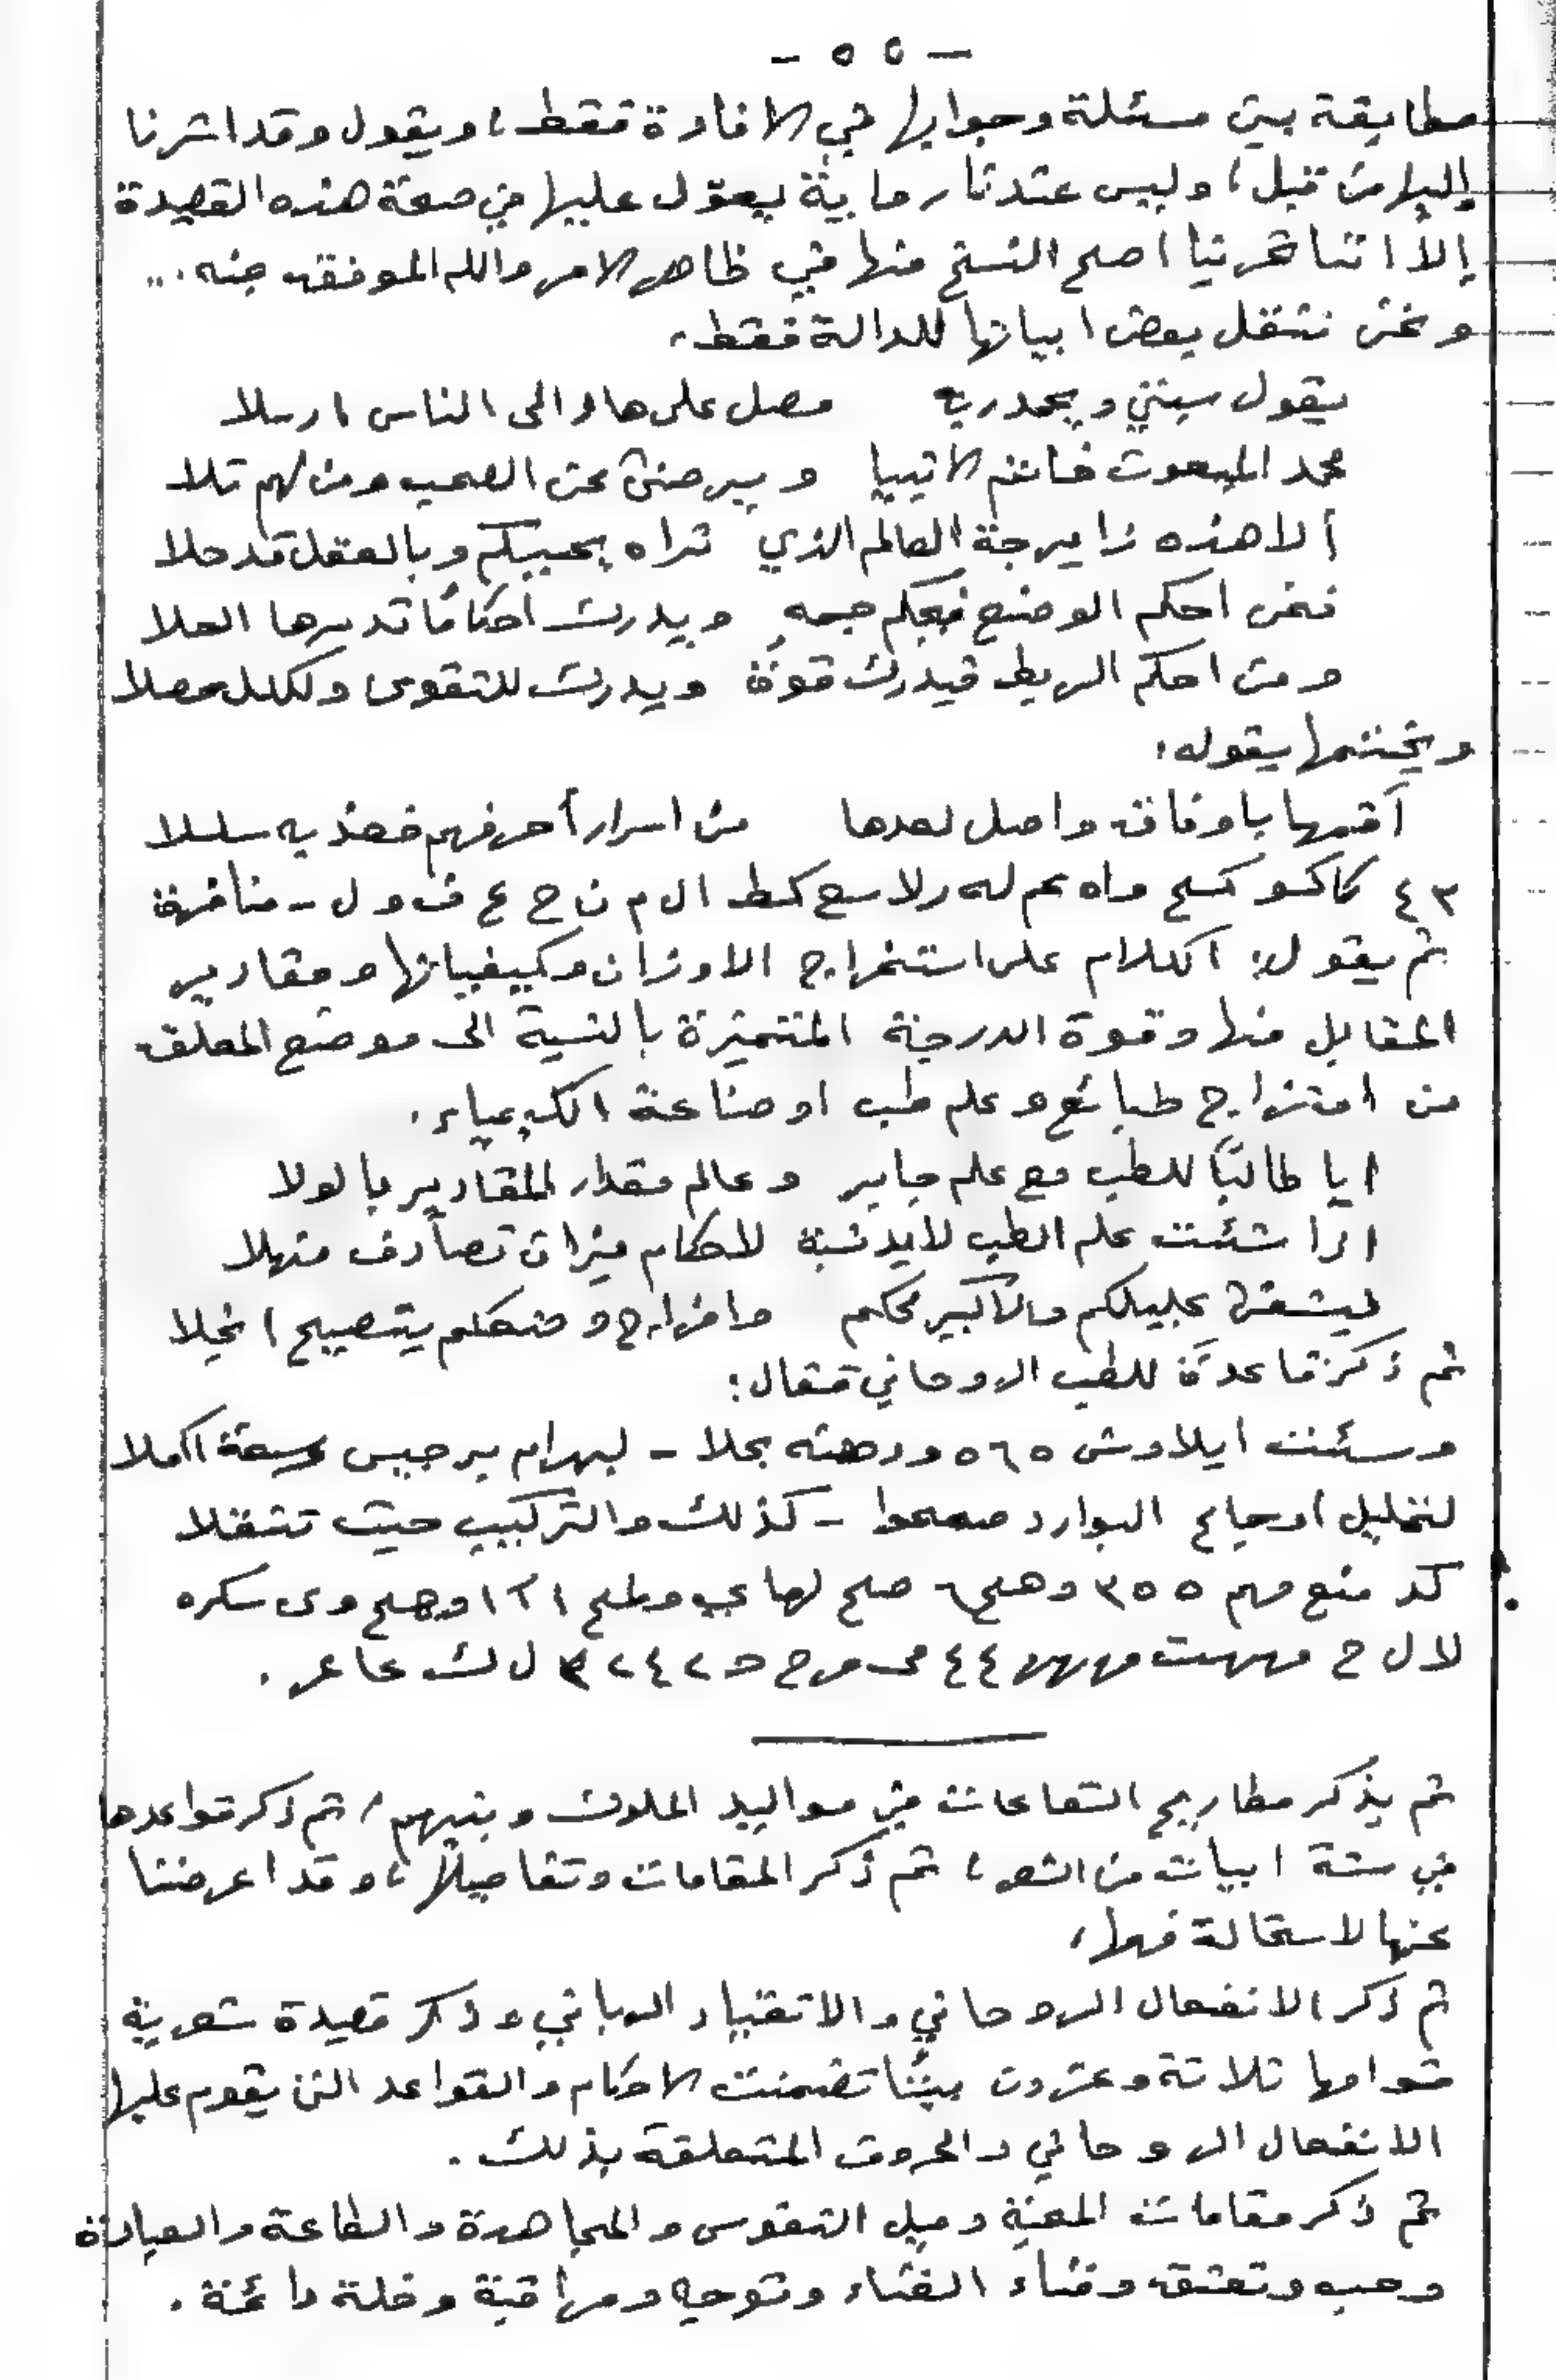 - ٥٥ -
مطابقة بين مسئلة وجوابها في الافادة فقط، ويقول وقد اشرنا
إليها من قبل، وليس عندنا رواية يعوّل عليها في صحة هذه القصيدة
إلاّ اننا تحرينا اصح النسخ منها في ظاهر الامر والله الموفق منه...
ونحن ننقل بعض ابياتها للدالة فقط،
يقول سبتي ويحمد ربه مصل على هاد الى الناس ارسلا
محمد المبعوث خاتم الانبيا ويرضى عن الصحب ومن لهم تلا
ألا هذه زايرجة العالم الذي تراه بحيبكم وبالعقل قد حلا
فمن احكم الوضع فيحكم جسمه ويدرك احكامًا تدبرها العلا
ومن احكم الربط فيدرك قوة ويدرك للتقوى ولكلل حصلا
ويختمها بقوله:
أقمها باوفاق واصل لعدها من اسرار أحرفهم فعذبه سلسلا
٤٣ كاكو كسح واه عم له رلا سع كط ال م ن ح ع ف ول - منافرة
ثم يقول: اكلام على استخراج الاوزان وكيفياتها ومقادير
المقابل منها وقوة الدرجة المتميزة بالنسبة الى موضع المعلق
من امتزاج طبائع وعلم طب او صناعة الكيمياء.
ايا طالبًا للطب مع علم جابر وعالم مقدار المقادير بالولا
اذا شئت علم الطب لابد نسبة لاحكام ميزان تصادف منهلا
ليشفى عليلكم والاكسير محكم وامزاج وضعكم بتصحيح انجلا
ثم ذكر قاعدة للطب الروحاني فقال:
وسئت ايلاوش ٥٦٥ ودهنه بحلا - لبهرام برجيس وسبعة اكملا
لتحليل اوجاع البوارد صححوا - كذلك والتركيب حيث تنقلا
كد منع مهم ٣٥٥ وهح٦ صح لها ي ولمح ١٢١ وهح وى سكره
لا ل ح مههت مههه ٤٤ مى مرح ح٢٤٢ ل ك عا عر.
ثم يذكر مطاريح الشعاعات في مواليد الملوك وبنيهم، ثم ذكر قواعدها
في ستة ابيات من الشعر، ثم ذكر المقامات وتفاصيلها، وقد اعرضنا
عنها لاستحالة فهمها،
ثم ذكر الانفعال الروحاني والانقياد الرباني وذكر قصيدة شعرية
قوامها ثلاثة وعشرون بيتًا تضمنت الاحكام والقواعد التي يقوم عليها
الانفعال الروحاني والحروف المتعلقة بذلك.
ثم ذكر مقامات المحبة وميل النفوس والمجاهدة والطاعة والعبادة
وحب وتعشق وفناء الفناء وتوجه ومراقبة وخلة دائمة.